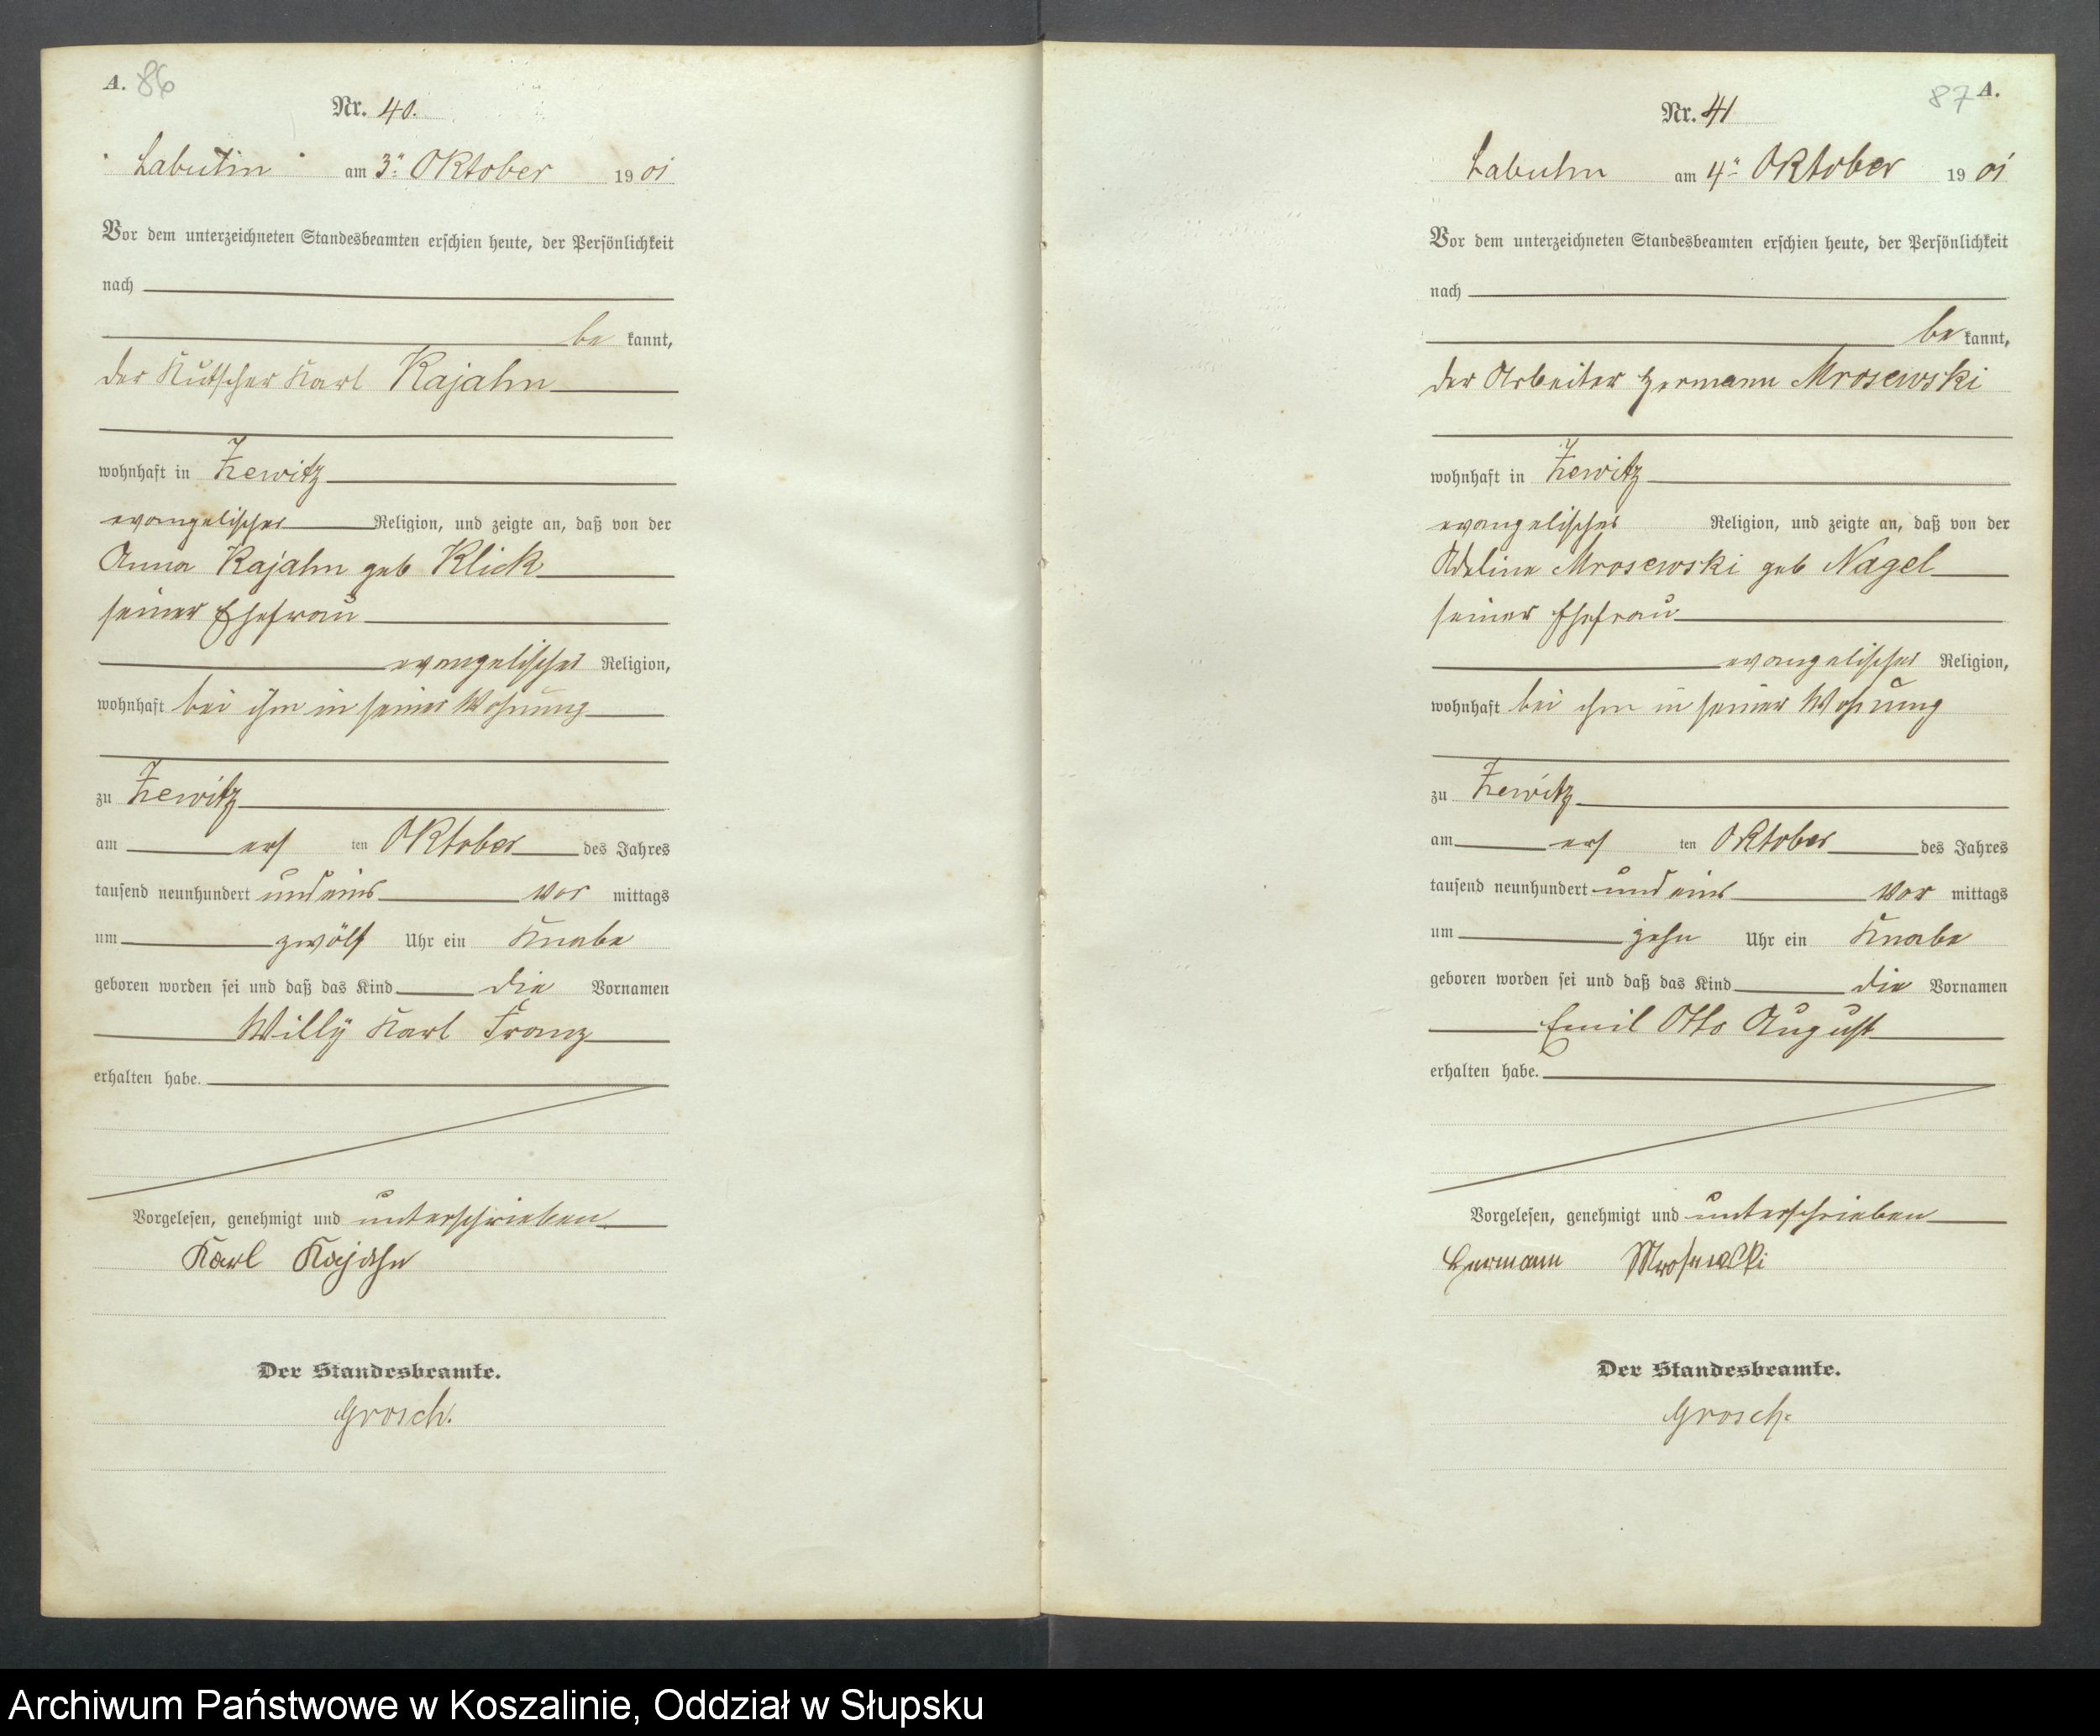 A. 86
Nr. 40.
Labuhn am 3ⁿ Oktober 1901
Vor dem unterzeichneten Standesbeamten erschien heute, der Persönlichkeit
nach
be kannt,
der Kutscher Karl Rajahn
wohnhaft in Zewitz
evangelischer Religion, und zeigte an, daß von der
Anna Rajahn geb Klick
seiner Ehefrau
evangelischer Religion,
wohnhaft bei ihm in seiner Wohnung
zu Zewitz
am ers ten Oktober des Jahres
tausend neunhundert und eins Vor mittags
um zwölf Uhr ein Knabe
geboren worden sei und daß das Kind die Vornamen
Willy Karl Franz
erhalten habe.
Vorgelesen, genehmigt und unterschrieben
Karl Rajahn
Der Standesbeamte.
Grosch.
87 A.
Nr. 41
Labuhn am 4ⁿ Oktober 1901
Vor dem unterzeichneten Standesbeamten erschien heute, der Persönlichkeit
nach
be kannt,
der Arbeiter Hermann Mrosewski
wohnhaft in Zewitz
evangelischer Religion, und zeigte an, daß von der
Adeline Mrosewski geb Nagel
seiner Ehefrau
evangelischer Religion,
wohnhaft bei ihm in seiner Wohnung
zu Zewitz
am ers ten Oktober des Jahres
tausend neunhundert und eins Vor mittags
um zehn Uhr ein Knabe
geboren worden sei und daß das Kind die Vornamen
Emil Otto August
erhalten habe.
Vorgelesen, genehmigt und unterschrieben
Hermann Mrosewski
Der Standesbeamte.
Grosch.
Archiwum Państwowe w Koszalinie, Oddział w Słupsku